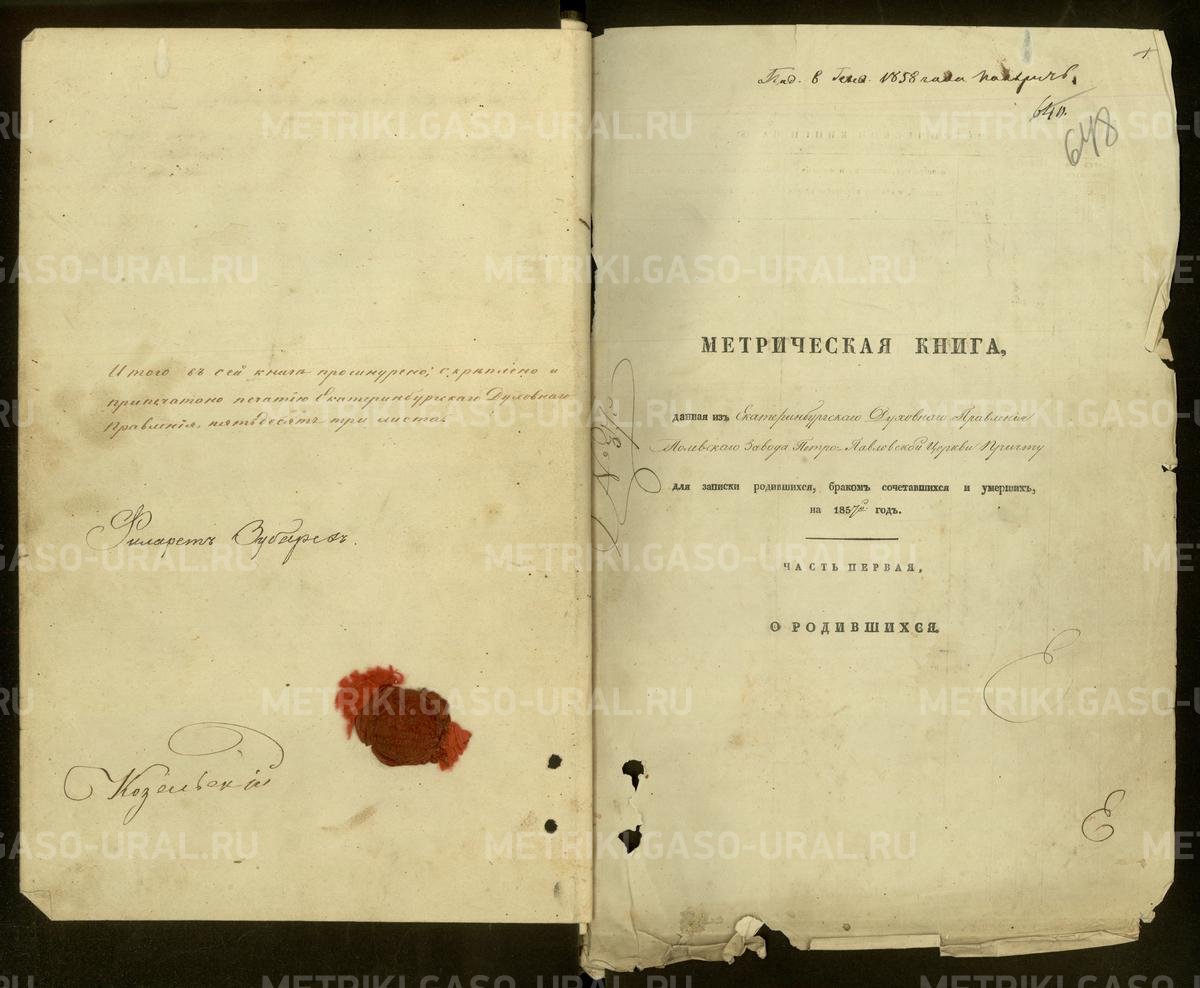 Итого въ сей книгѣ прошнурено, скрѣплено и
припечатано печатію Екатеринбургскаго Духовнаго
Правленія, пятьдесятъ три листа.
Филаретъ Зубаревъ.
Козельскій
1858 года
640.
648
МЕТРИЧЕСКАЯ КНИГА,
данная изъ Екатеринбургскаго Духовнаго Правленія
Завода Петро-Павловской Церкви Причту
для записки родившихся, бракомъ сочетавшихся и умершихъ,
на 1857й годъ.
ЧАСТЬ ПЕРВАЯ,
О РОДИВШИХСЯ.
METRIKI.GASO-URAL.RU